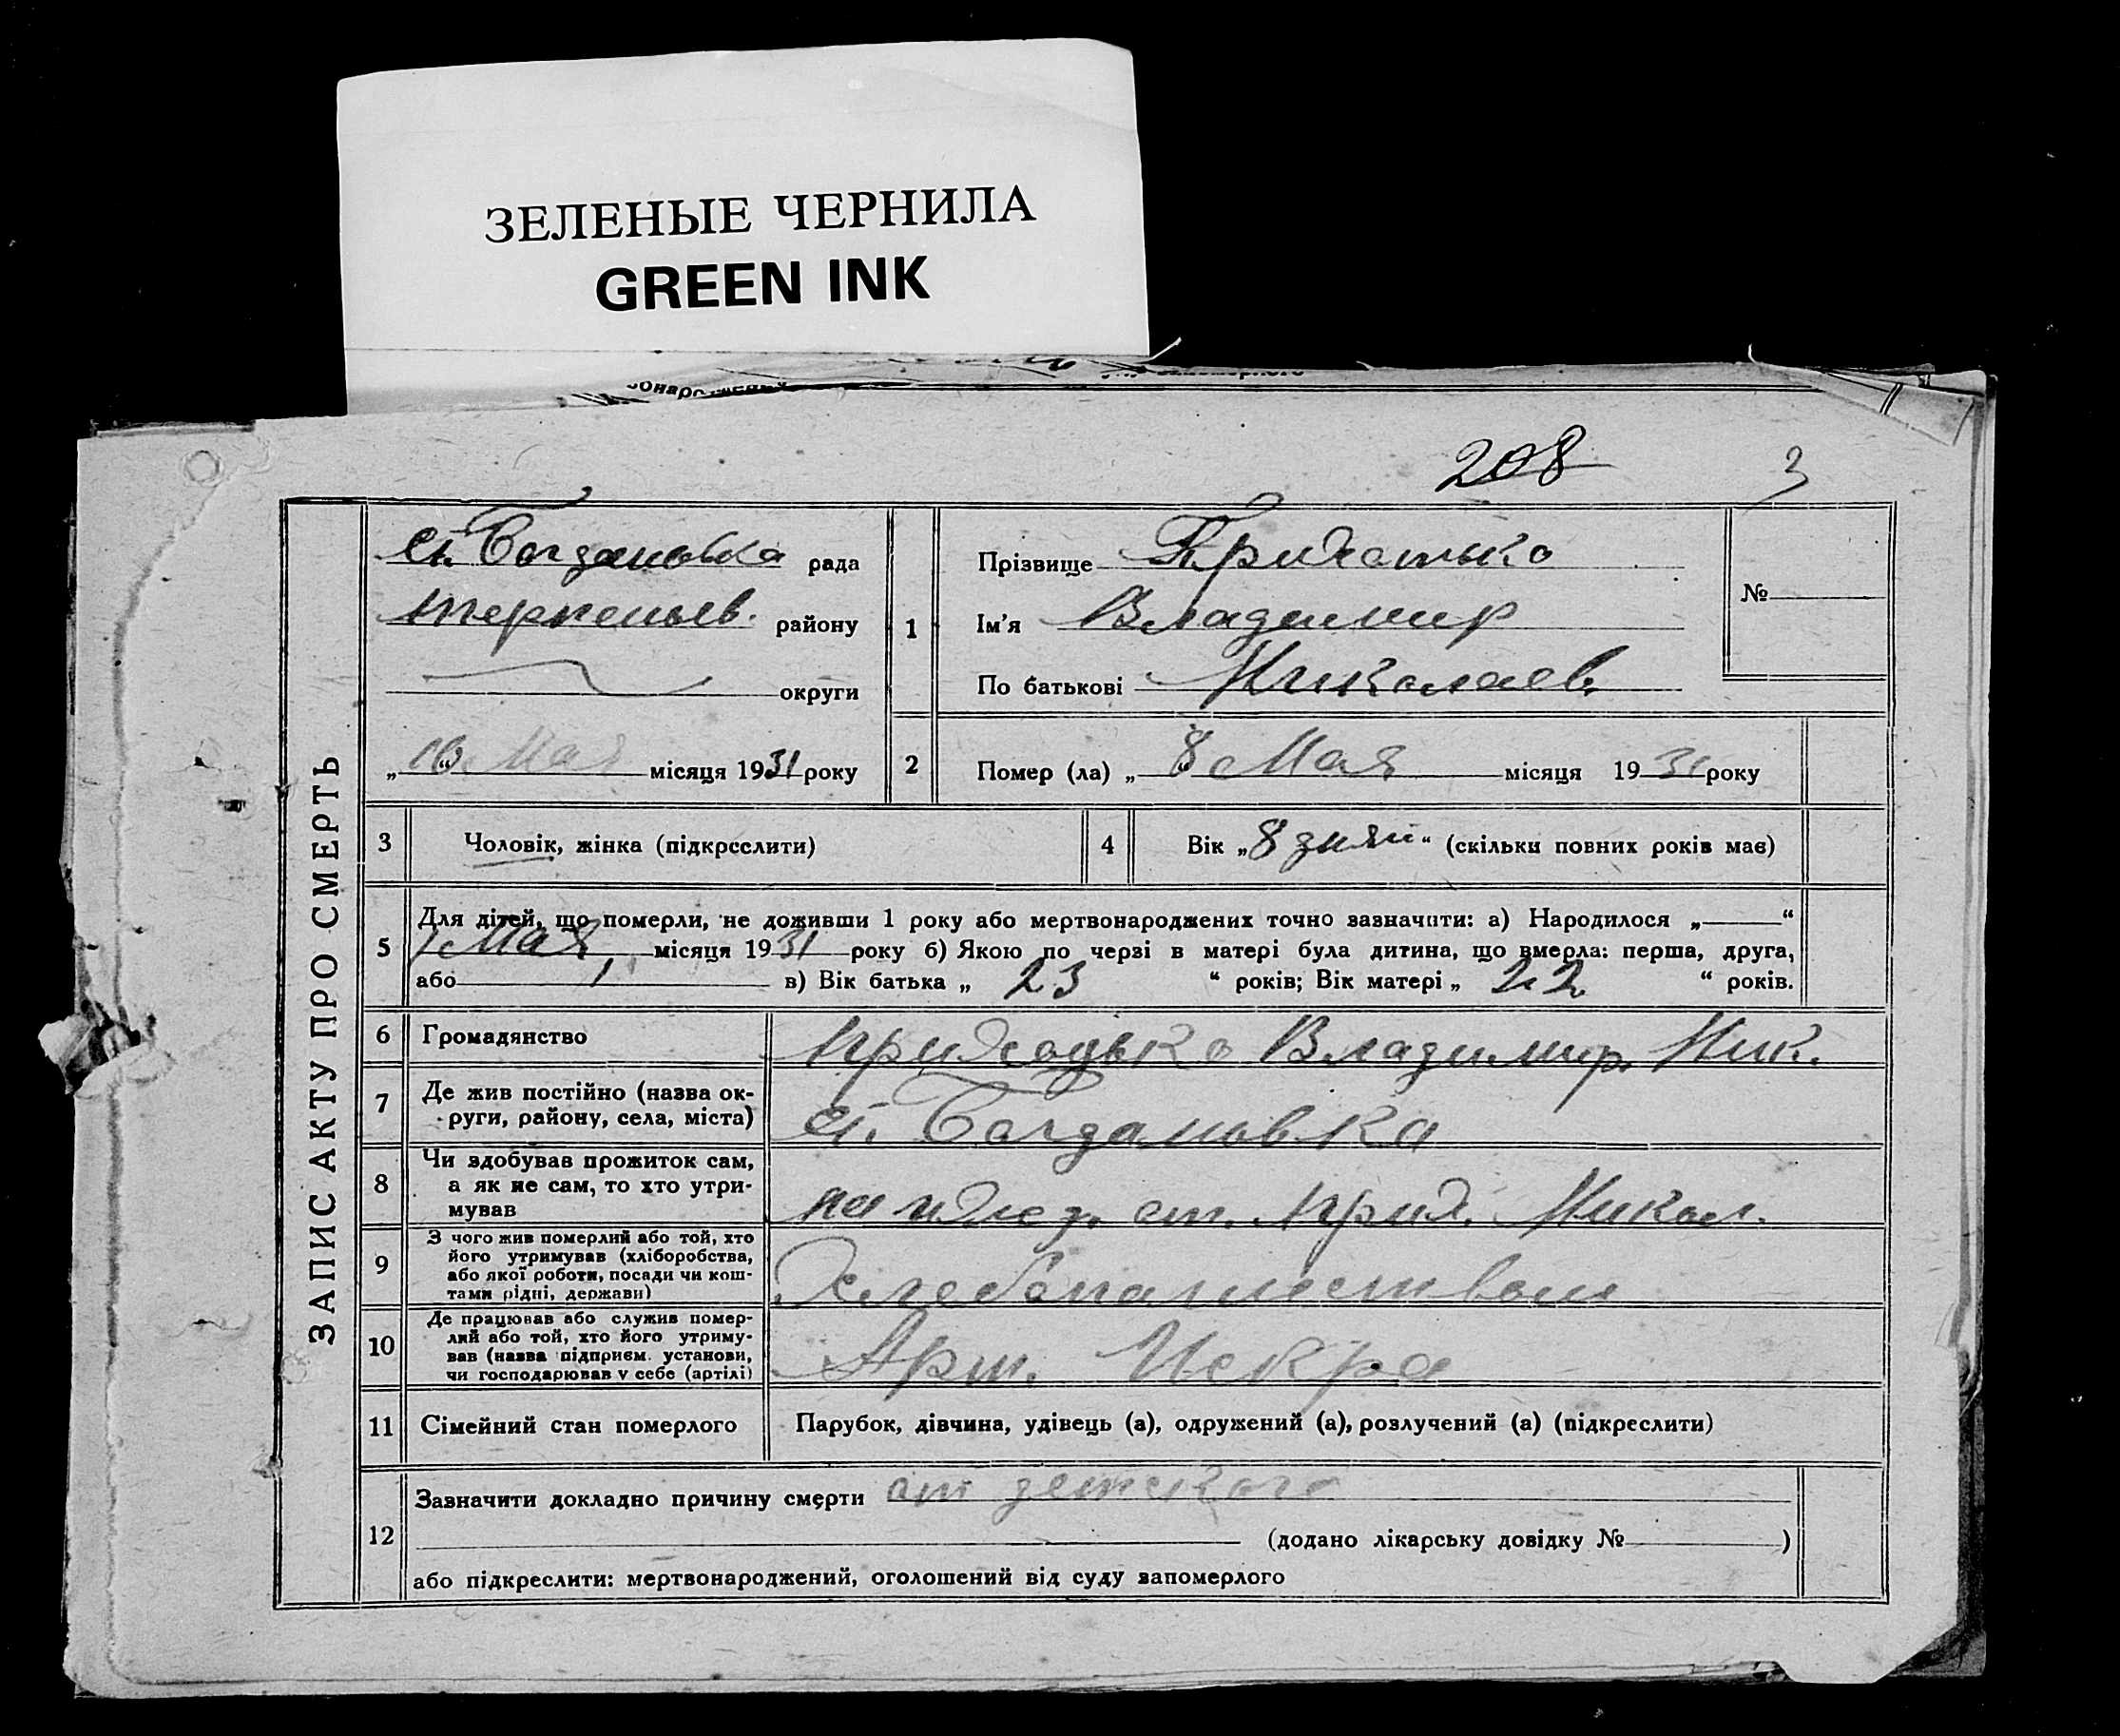 ЗЕЛЕНЫЕ ЧЕРНИЛА
GREEN INK
208 3
ЗАПИС АКТУ ПРО СМЕРТЬ
ст. Богдановка рада
терпеньев. району
округи
„10“ Мая місяця 1931 року
1
Прізвище Приходько
Ім'я Владимир
По батькові Николаев.
№
2 Помер (ла) „8 Мая місяця 1931 року
3 Чоловік, жінка (підкреслити)
4 Вік „8 дней“ (скільки повних років має)
5 Для дітей, що померли, не доживши 1 року або мертвонароджених точно зазначити: а) Народилося „ “
1 Мая місяця 1931 року б) Якою по черзі в матері була дитина, що вмерла: перша, друга,
або 1 в) Вік батька „ 23 “ років; Вік матері „ 22 “ років.
6 Громадянство Приходько Владимир. Ник.
7 Де жив постійно (назва ок-
руги, району, села, міста) ст. Богдановка
8 Чи здобував прожиток сам,
а як не сам, то хто утри-
мував на ижд. от. Прих. Никол.
9 З чого жив померлий або той, хто
його утримував (хліборобства,
або якої роботи, посади чи кош-
тами рідні, держави) Хлебопашеством
10 Де працював або служив помер-
лий або той, хто його утриму-
вав (назва підприєм. установи,
чи господарював у себе (артілі) Арт. Искра
11 Сімейний стан померлого Парубок, дівчина, удівець (а), одружений (а), розлучений (а) (підкреслити)
12 Зазначити докладно причину смерти от детского
(додано лікарську довідку № )
або підкреслити: мертвонароджений, оголошений від суду запомерлого